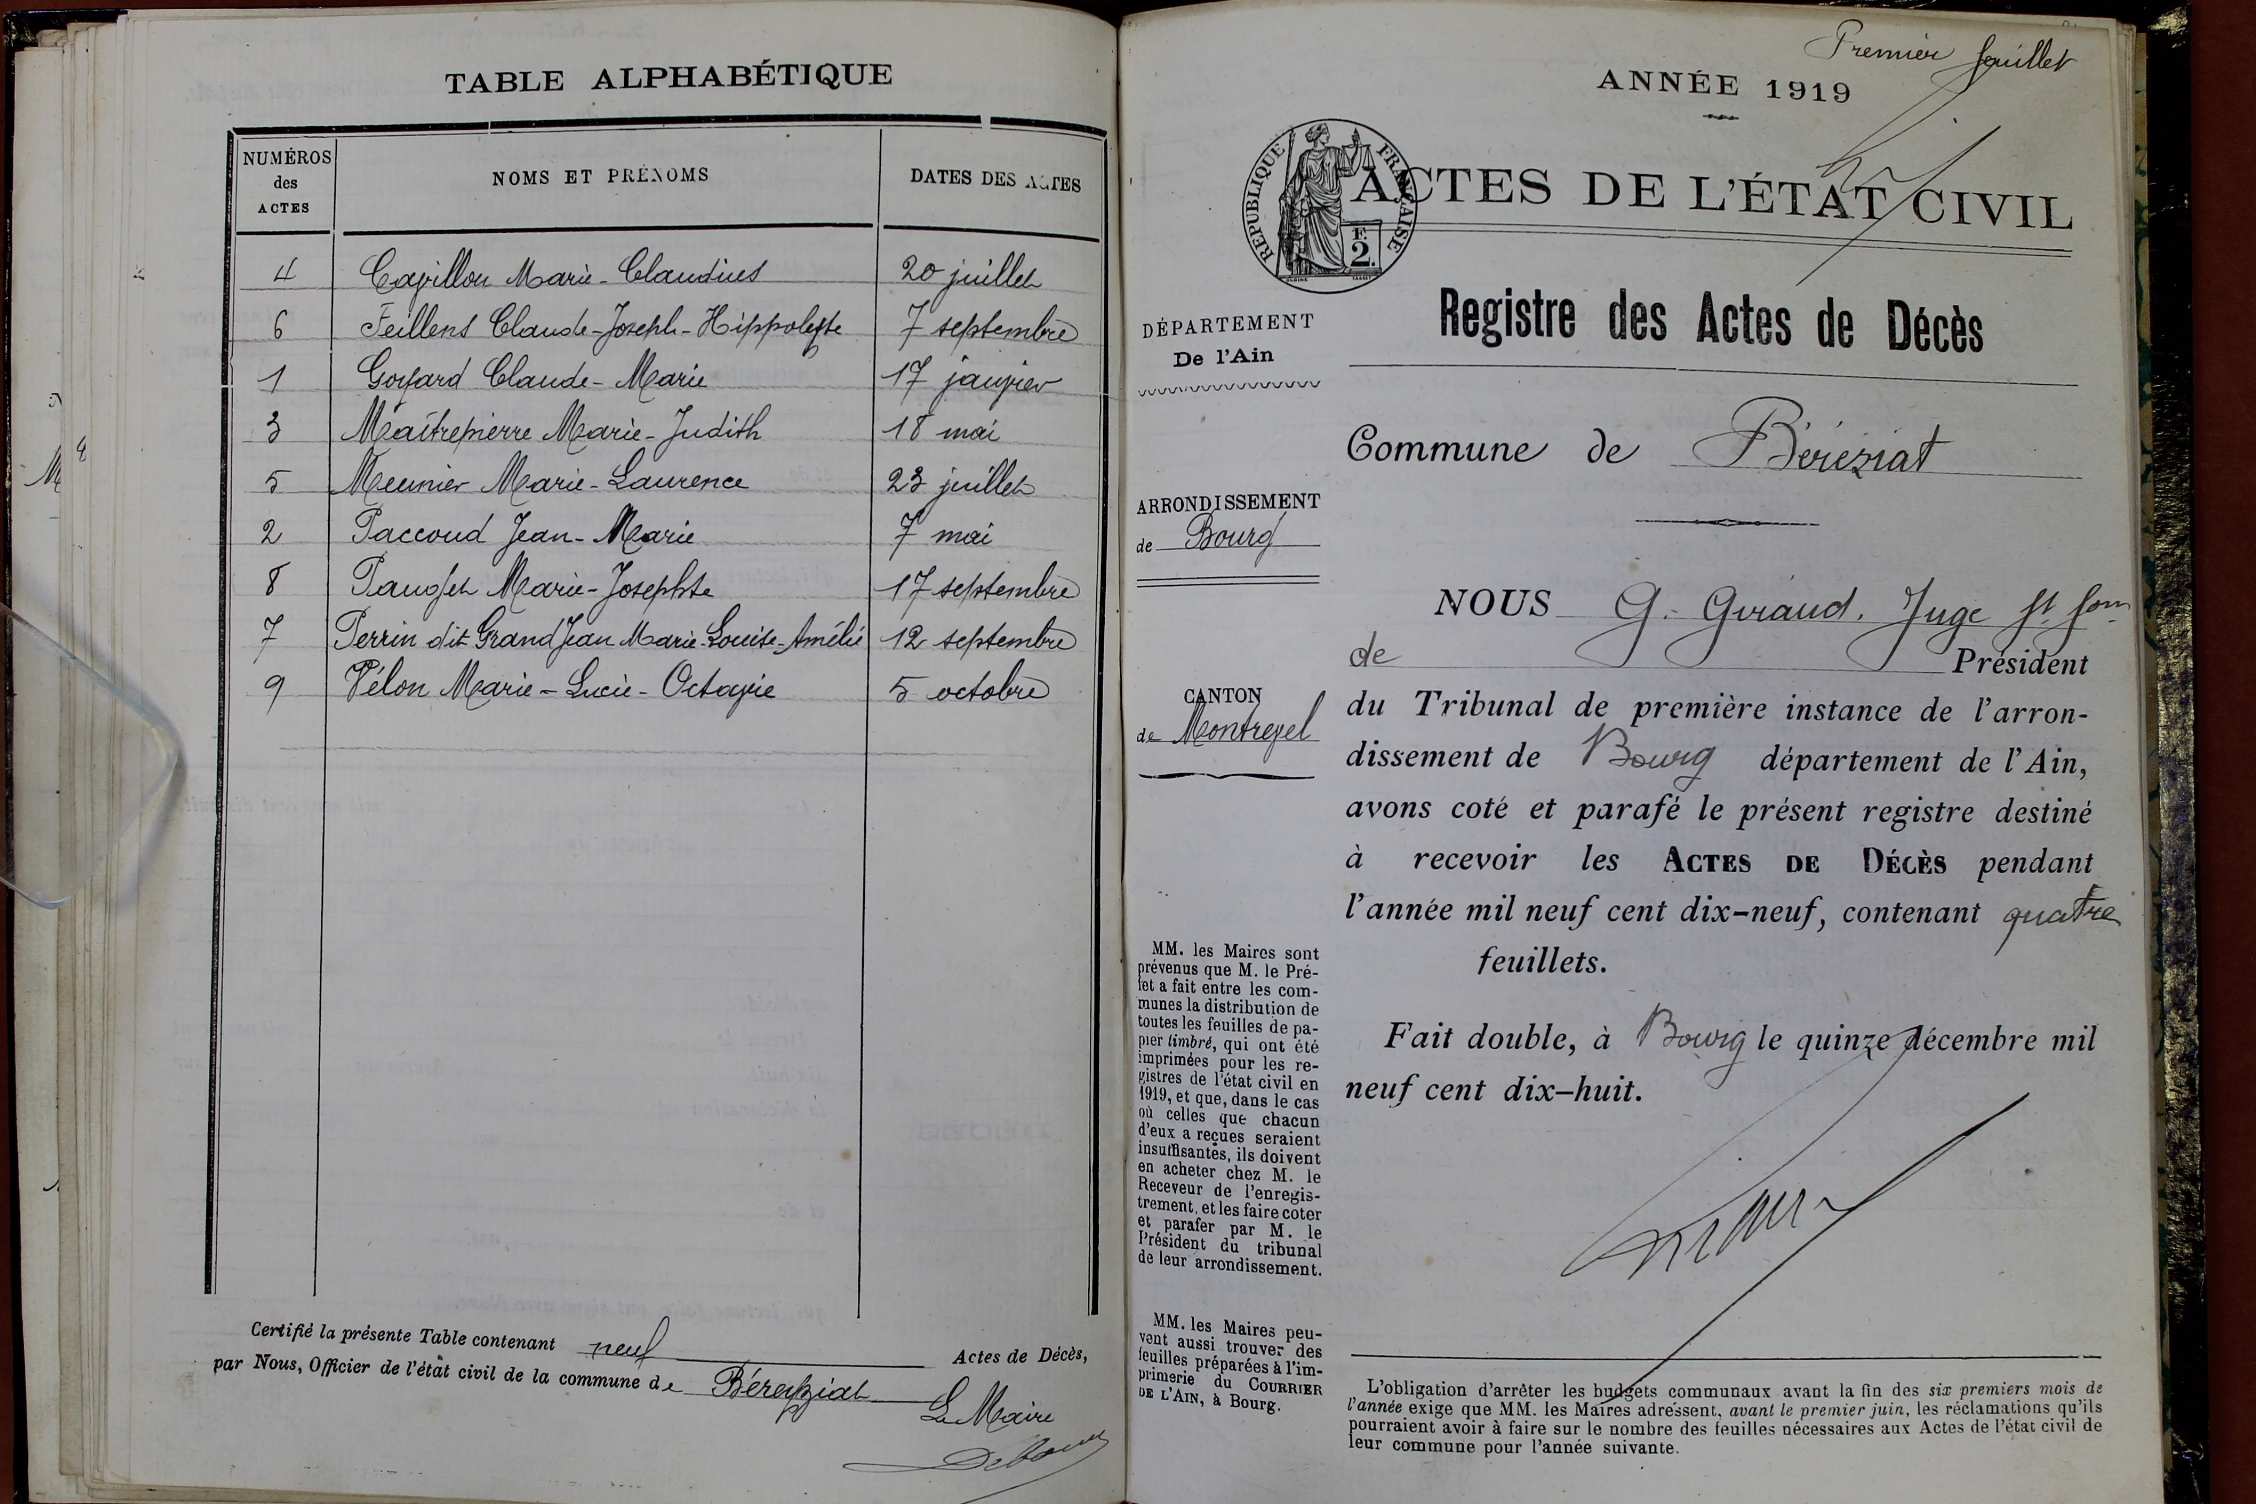 TABLE ALPHABÉTIQUE
NUMÉROS
des
ACTES
NOMS ET PRÉNOMS
DATES DES ACTES
4 Cavillon Marie-Claudius 20 juillet
6 Feillens Claude-Joseph-Hippolyte 7 septembre
1 Goyard Claude-Marie 17 janvier
3 Maîtrepierre Marie-Judith 18 mai
5 Meunier Marie-Laurence 23 juillet
2 Paccoud Jean-Marie 7 mai
8 Pauget Marie-Josephte 17 septembre
7 Perrin dit GrandJean Marie-Louise-Amélie 12 septembre
9 Vélon Marie-Lucie-Octavie 5 octobre
Certifié la présente Table contenant neuf Actes de Décès,
par Nous, Officier de l'état civil de la commune de Béreyziat
Le Maire
Premier feuillet
ANNÉE 1919
RÉPUBLIQUE FRANÇAISE
2
ACTES DE L'ÉTAT CIVIL
Registre des Actes de Décès
DÉPARTEMENT
De l'Ain
Commune de Béréziat
ARRONDISSEMENT
de Bourg
CANTON
de Montrevel
NOUS G. Giraud. Juge
de Président
du Tribunal de première instance de l'arron-
dissement de Bourg département de l'Ain,
avons coté et parafé le présent registre destiné
à recevoir les ACTES DE DÉCÈS pendant
l'année mil neuf cent dix-neuf, contenant quatre
feuillets.
Fait double, à Bourg le quinze décembre mil
neuf cent dix-huit.
MM. les Maires sont
prévenus que M. le Pré-
fet a fait entre les com-
munes la distribution de
toutes les feuilles de pa-
pier timbré, qui ont été
imprimées pour les re-
gistres de l'état civil en
1919, et que, dans le cas
où celles que chacun
d'eux a reçues seraient
insuffisantes, ils doivent
en acheter chez M. le
Receveur de l'enregis-
trement, et les faire coter
et parafer par M. le
Président du tribunal
de leur arrondissement.
MM. les Maires peu-
vent aussi trouver des
feuilles préparées à l'im-
primerie du COURRIER
DE L'AIN, à Bourg.
L'obligation d'arrêter les budgets communaux avant la fin des six premiers mois de
l'année exige que MM. les Maires adressent, avant le premier juin, les réclamations qu'ils
pourraient avoir à faire sur le nombre des feuilles nécessaires aux Actes de l'état civil de
leur commune pour l'année suivante.